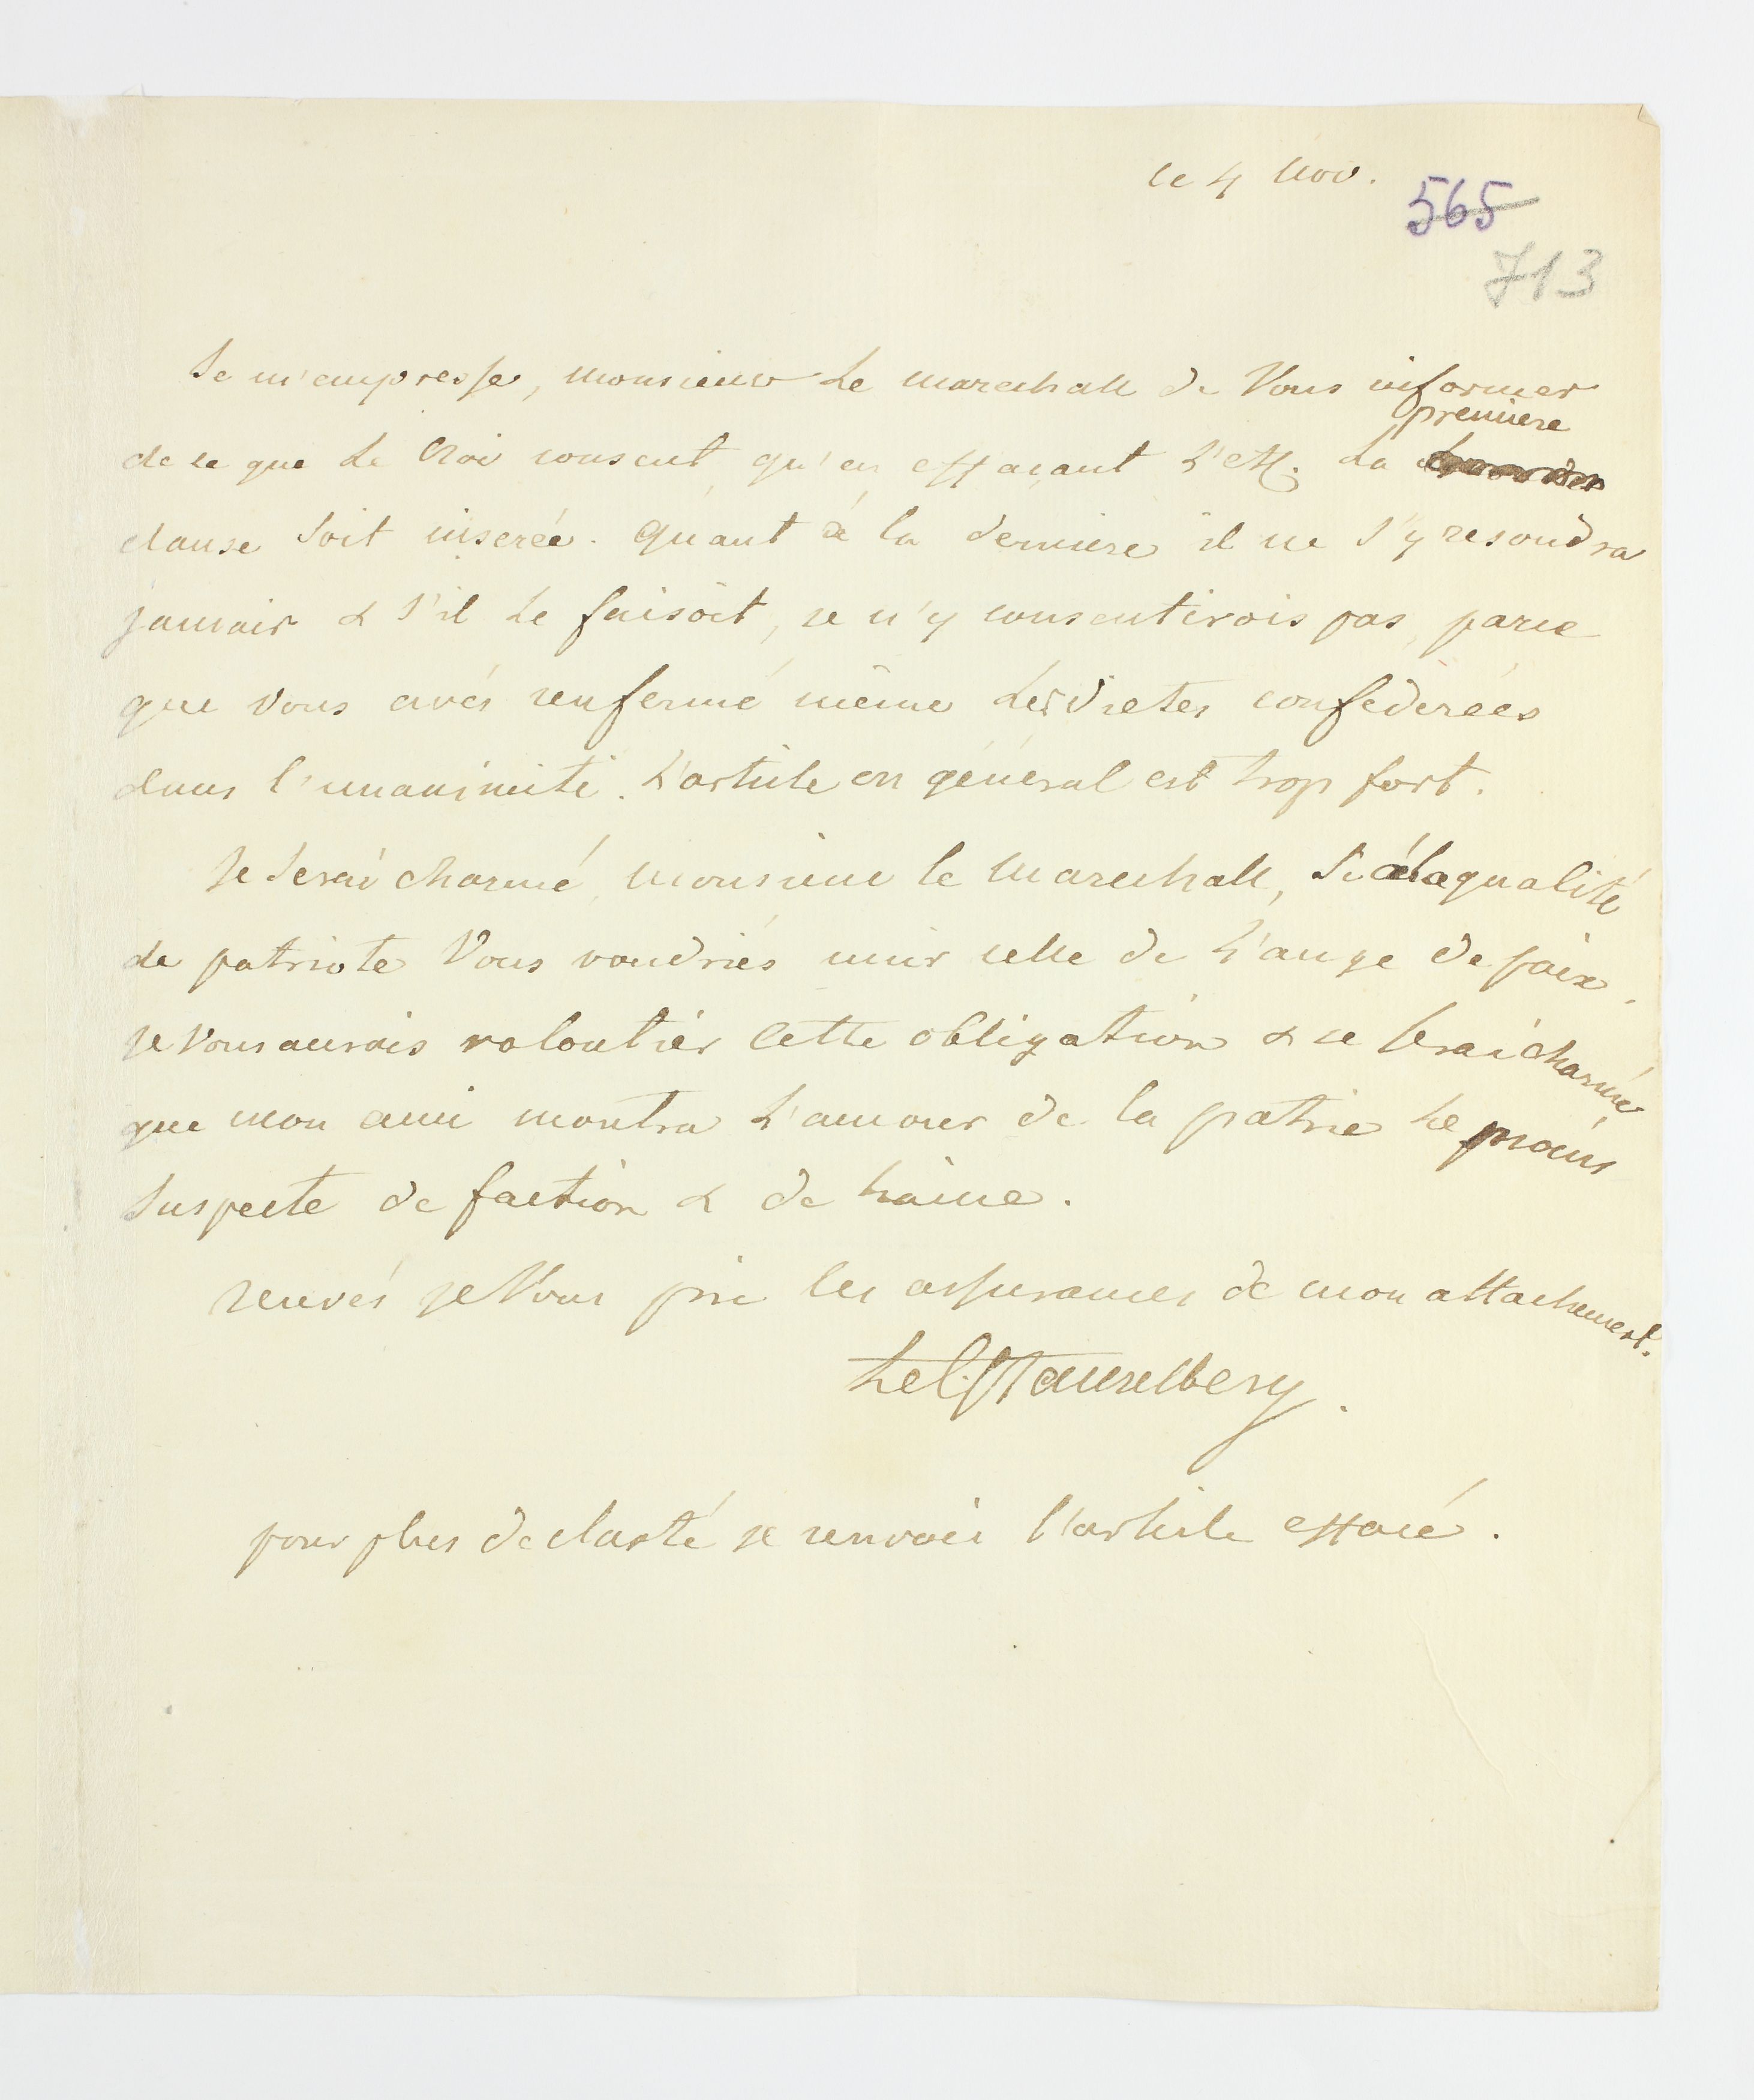 le 4 Nov.
565
713
Je m'empresse, monsieur Le marechall de Vous informer
premiere
de ce que Le Roi consent qu'en effaçant L'etc. La
clause soit inserée. Quant à la derniere il ne s'y resoudra
jamais & s'il Le faisoit, je n'y consentirois pas, parce
que vous avés renfermé même Les Dietes confederées
dans l'unanimité. L'article en général est trop fort.
Je serai charmé, Monsieur le Marechall, si à la qualité
de patriote Vous voudriés unir celle de L'ange de paix,
je Vous aurais volontièr cette obligation & je serai charmé
que mon ami montra L'amour de la patrie Le moins
suspecte de faction & de haine.
recevés je Vous prie les assurances de mon attachement.
Le C. Stackelberg.
pour plus de clarté je renvoie l'article effacé.